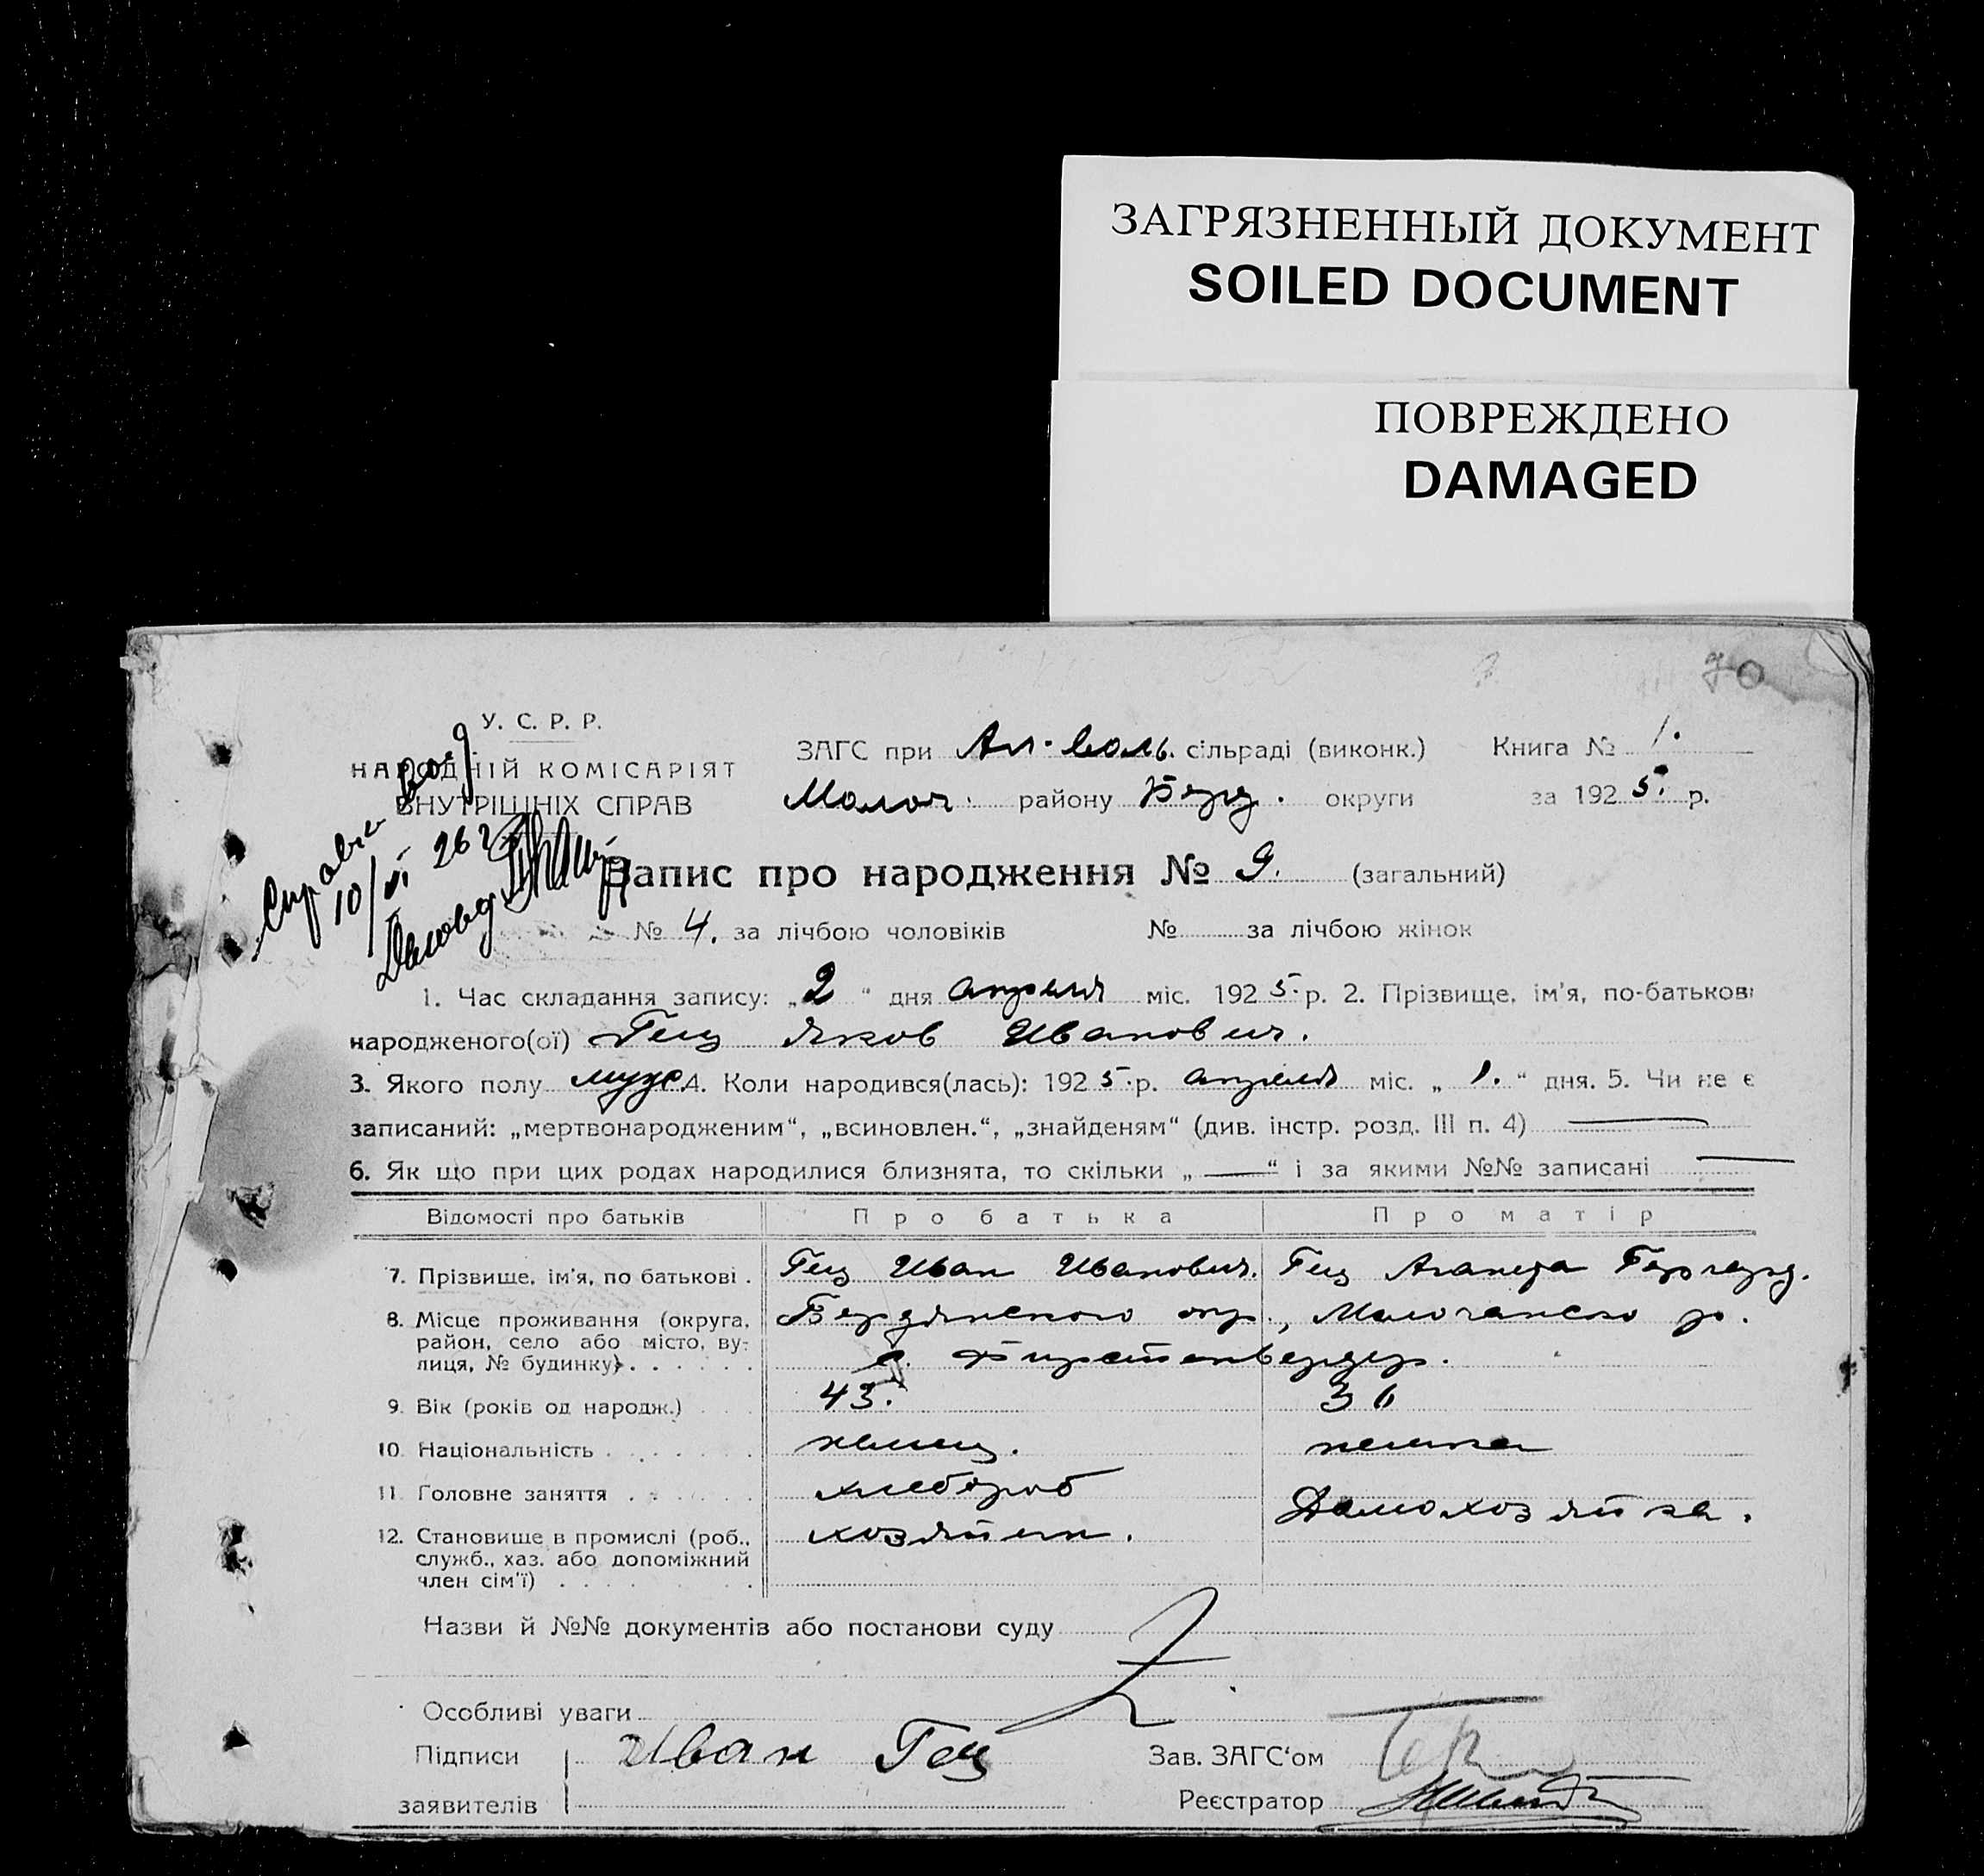 ЗАГРЯЗНЕННЫЙ ДОКУМЕНТ
SOILED DOCUMENT
ПОВРЕЖДЕНО
DAMAGED
70
У. С. Р. Р.
НАРОДНІЙ КОМІСАРІЯТ
ВНУТРІШНІХ СПРАВ
ЗАГС при Ал-Коль. сільраді (виконк.) Книга № 1.
Молоч. району Берд. округи за 1925. р.
10/VI 26
Запис про народження № 9. (загальний)
№ 4. за лічбою чоловіків № за лічбою жінок
1. Час складання запису: „2“ дня апреля міс. 1925. р. 2. Прізвище, ім'я, по-батькові
народженого(ої) Гец Яков Иванович.
3. Якого полу муж. 4. Коли народився(лась): 1925. р. апреля міс. „1.“ дня. 5. Чи не є
записаний: „мертвонародженим“, „всиновлен.“, „знайденям“ (див. інстр. розд. III п. 4) —
6. Як що при цих родах народилися близнята, то скільки „—“ і за якими №№ записані —
Відомості про батьків Про батька Про матір
7. Прізвище, ім'я, по батькові . Гец Иван Иванович. Гец Аганета Гергард.
8. Місце проживання (округа, район, село або місто, вулиця, № будинку) . . . . . . Бердянского окр., Молочанско ро.
с. Фирстенвердер.
9. Вік (років од народж.) . . . 43. 36
10. Національність . . . . . . . немец. немка
11. Головне заняття . . . . . . хлебороб Домохозяйка.
12. Становище в промислі (роб., служб., хаз. або допоміжний член сім'ї) . . . . . . . хозяин.
Назви й №№ документів або постанови суду
Особливі уваги
Підписи Иван Гец Зав. ЗАГС'ом
заявителів Реєстратор